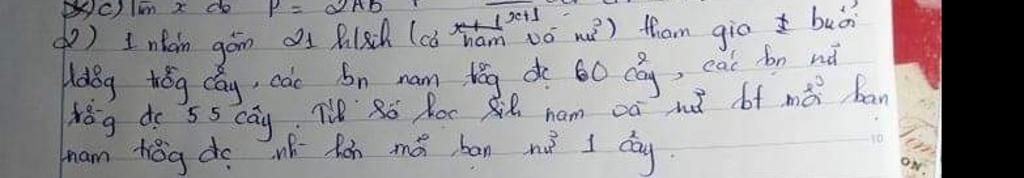 c) Tìm x để P = 2AB
2) 1 nhón gồm 21 hlsih (cả nam và nữ) tham gia 1 buổi
lđộg trồg cây, các bn nam tồg đc 60 cây, các bn nữ
trồg đc 55 cây. Tíh số học sih nam và nữ bt mỗi bạn
nam trồg đc nh` hơn mỗi bạn nữ 1 cây.